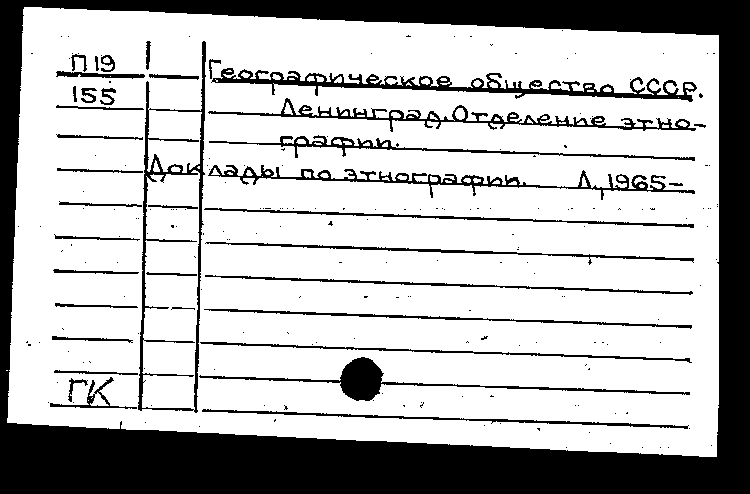 П19 Географическое общество СССР.
155 Ленинград. Отделение этно-
графии.
Доклады по этнографии. Л., 1965-
ГК